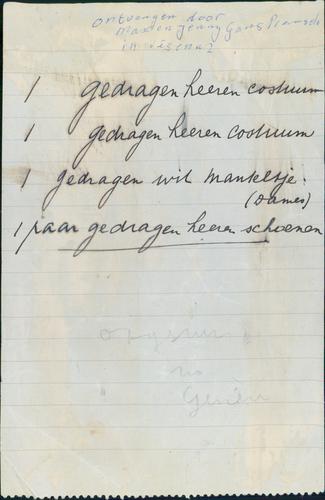 ontvangen door
Jenny Gans
in
1 gedragen heeren costuum
1 gedragen heeren costuum
1 gedragen wit manteltje.
(Dames)
1 paar gedragen heeren schoenen